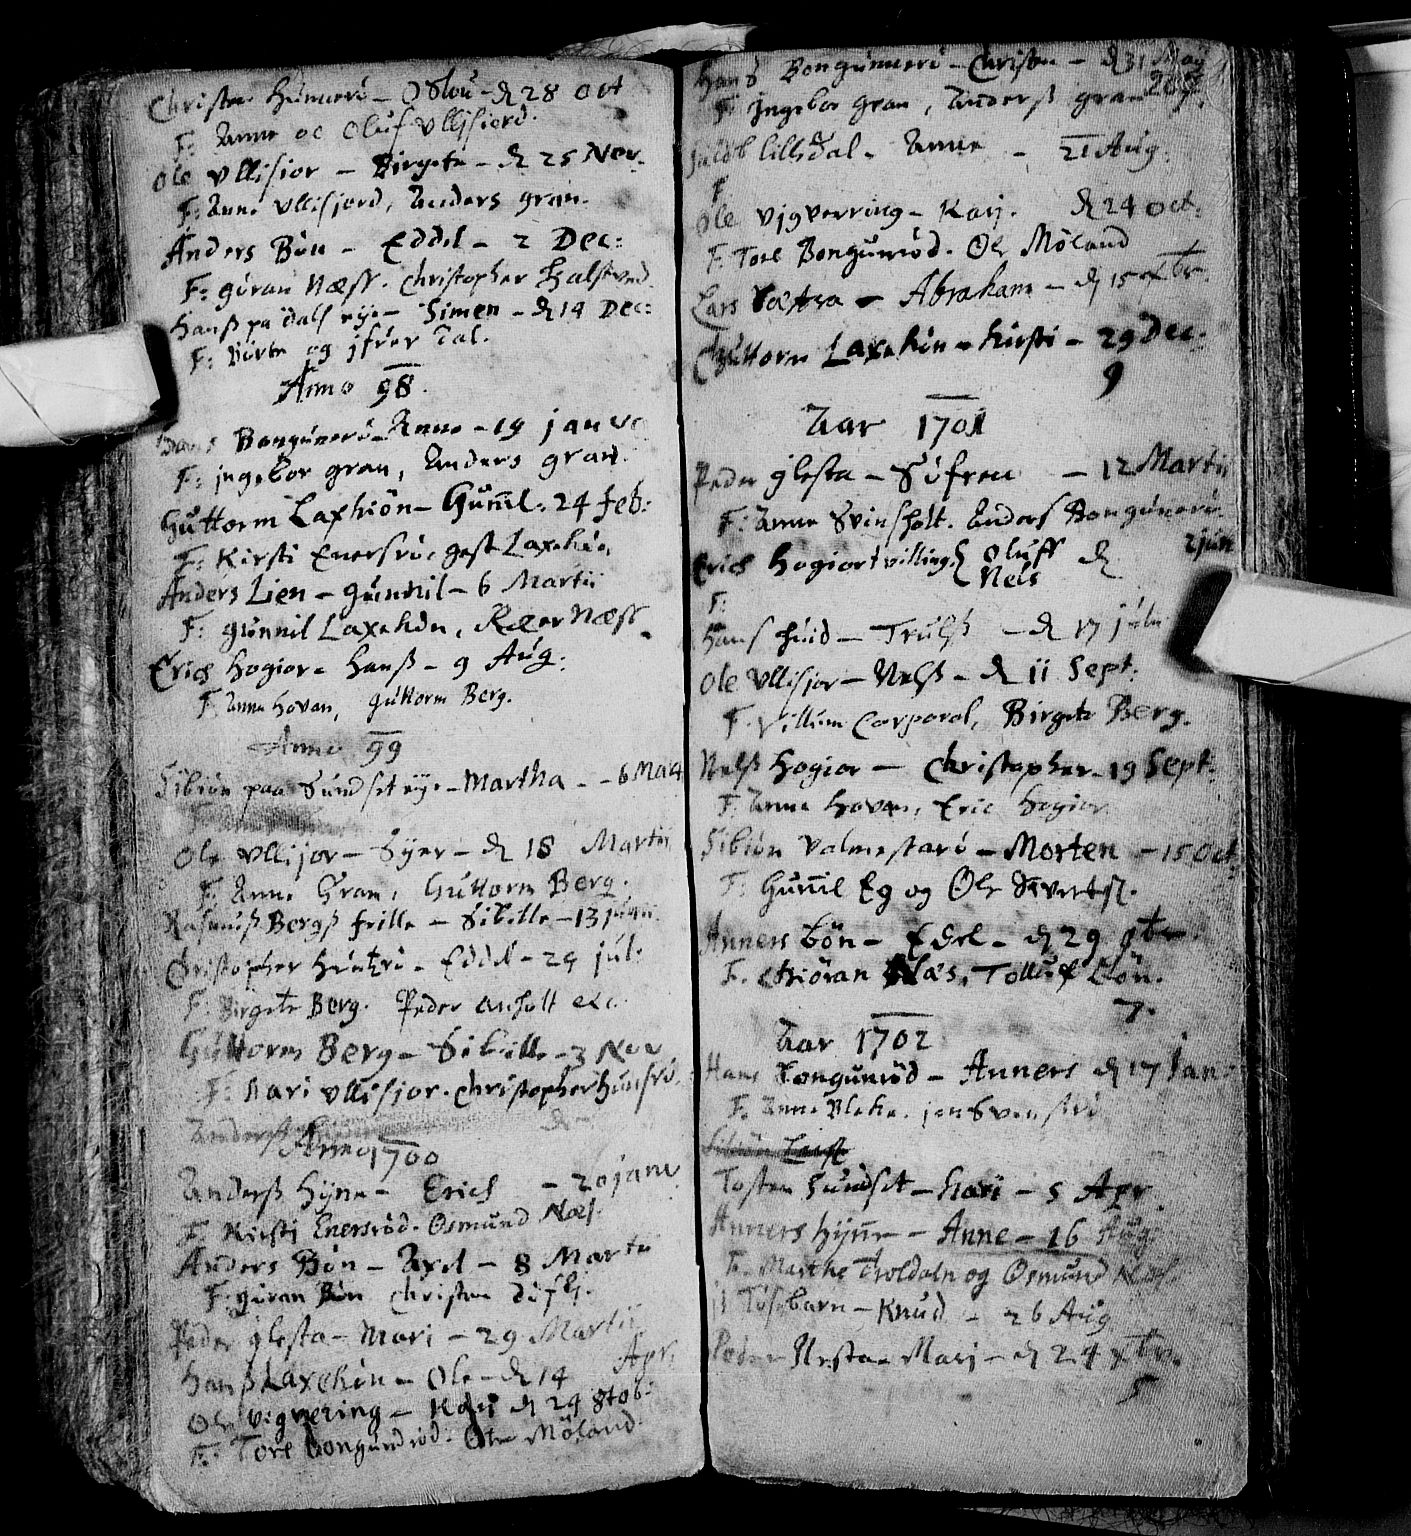 Christen Hunnerö - Oflou - d 28 Oct
F: Anne oc Oluf Ullisiord.
Ole Ullisior - Birgete - d 25 Nov.
F: Anne Ullisjord, Anders gran.
Anders Bön - Eddel - 2 Dec:
F: göran Næss. Christopher Halstved
Hanß pa Dals eye - Simen - d 14 Dec:
F: Börte og jfver Dal.
Anno 98.
Hans Bongunerö - Anne - 19 janv
F: jngebor gran, Anders gran.
Guttorm Laxhiön - Gunnil. 24 feb:
F: Kirsti Enersrö, gest Laxehön
Anders Lien - gunnil - 6 Martii
F: gunnil Laxehön, Roer Næss
Erich Hogior - Hanß - 9 Aug:
F: Anne Hovan, Guttorm Berg.
Anno 99
Sibiön paa Sundset eye - Martha - 6 Maij
F:
Ole Ullisjor - Syver - d 18 Martii
F: Anne Gran, Guttorm Berg.
Rasmuß Bergß frille - Sibille - 13 junii
Christopher - Eddel - 24 jul:
F: Birgete Berg. Peder Anholt etc
Guttorm Berg - Sibille - 3 Nov
F: Kari Ullisjor. Christopher Hunsrö.
Anders
Anno 1700
Anderß Hyne - Erich - 20 janv
F: Kirsti Enersröd. Osmund Næs.
Anders Bön - Axel - 8 Martii
F: göran Bön Christen
Peder glesta - Mari - 29 Martii
Hanß Laxehön - Ole - d 14 Apr:
Ole Vigvering - Kari d 24 8tob:
F: Tore Bongundröd. Ole Möland
Hans Bongunnerö - Christen - d 31 Maij
F: jngebor gran, Anderß gran
lillsdal - Anne - 21 Aug:
F
Ole Vigverring - Karj. d 24 Oct:
F: Tore Bongunröd. Ole Möland
Lars Sætra - Abraham - d 15 xbr
Guttorm Laxehön - Kirsti - 29 Dec:
9
Aar 1701
Peder glesta - Söfren - 12 Martii
F: Anne Svinsholt. Anders Bongunerö
Erich Hogior tvilling Oluff d 2 jun
Nels
F:
Hans huid - Trulß - d 17 julii
Ole Ullisjor - Nelß - d 11 Sept:
F. Villum Corporal, Birgete Berg.
Nelß Hogior - Christopher - 19 Sept:
F: Anne Hovan, Eric Hogior
Sibiön Valmestarö - Morten - 15 Oct
F: Gunnil Eg og Ole Sivertß.
Anners Bön - Edel - d 29 9br
F. Giöran Næs, Tolluf Bön.
7.
Aar 1702
Hans Bongunröd - Anners d 17 Jan
F. Anne Bleke. jen Svensrö
Sibiön Larß
Tosten Sundset - Kari - 5 Apr
Anners Hynne - Anne - 16 Aug:
F. Marthe Troldaln og Osmund Næs.
it Tösebarn - Knud - 26 Aug
Peder Nesta - Marj - d 24 xbr.
5